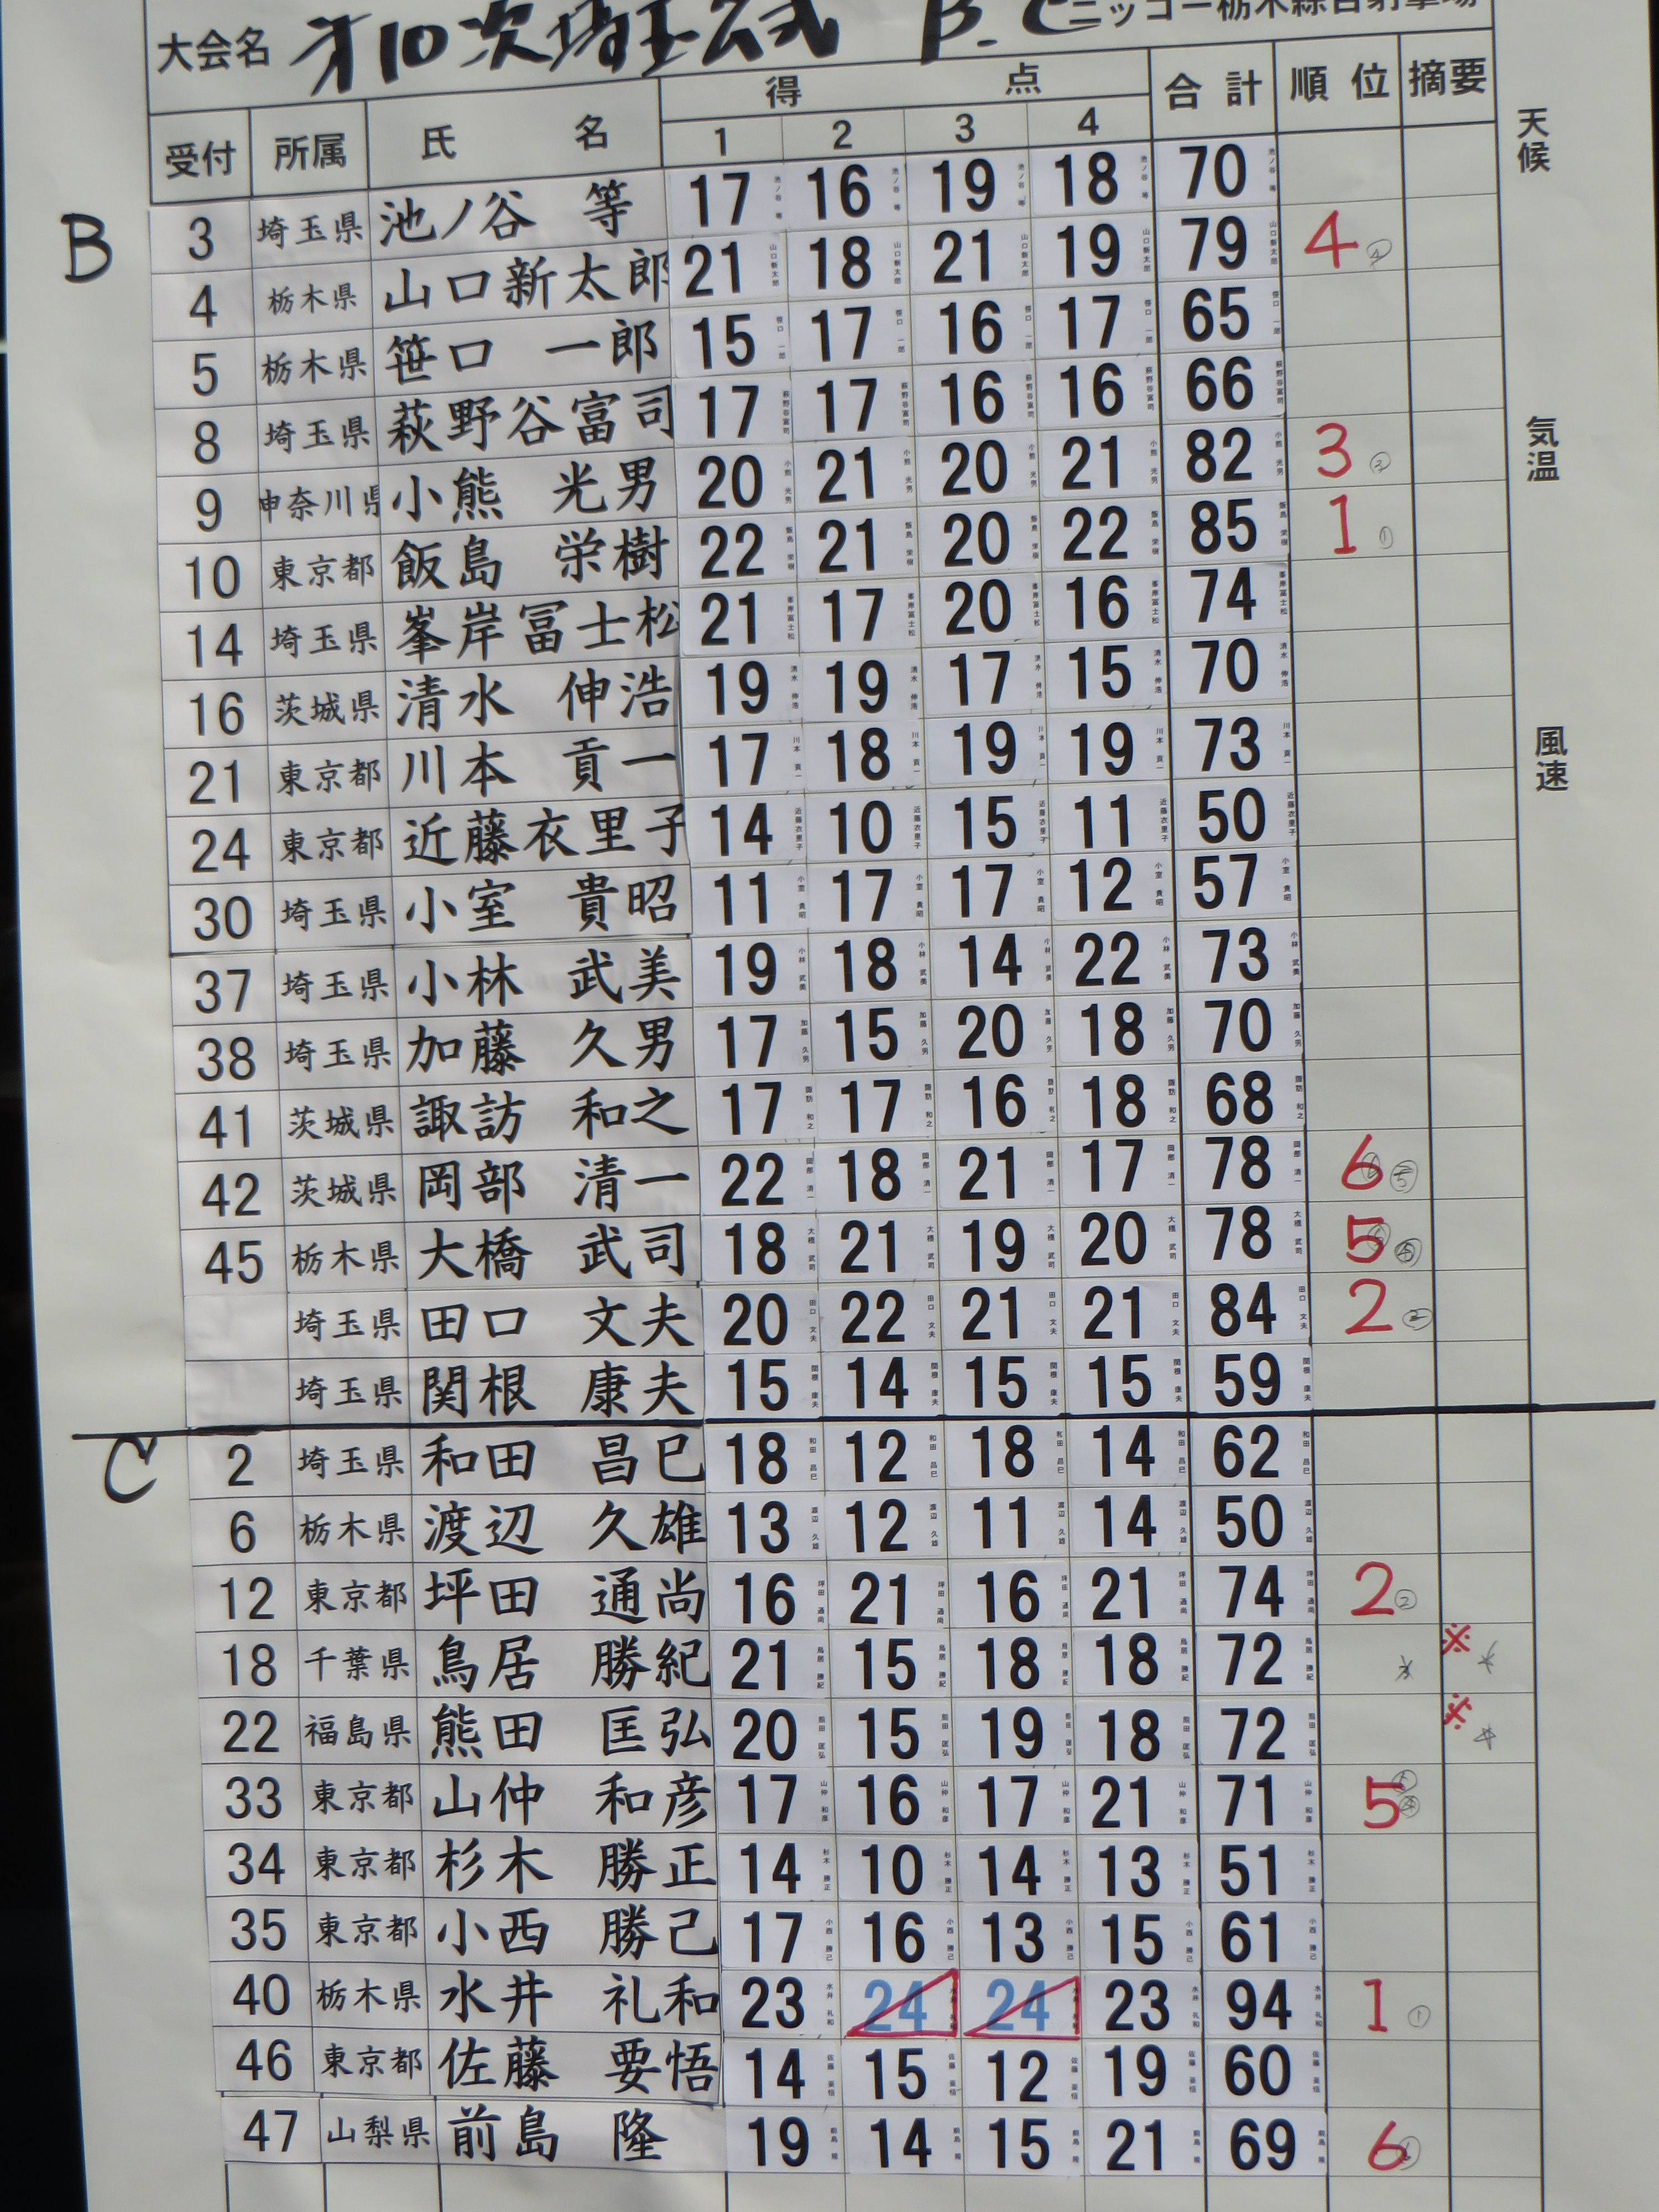 大会名 才10次埼玉公式 B. C ニッコー栃木綜合射撃場
受付 所属 氏名 得点 合計 順位 摘要
1 2 3 4
天候
気温
風速
B
3 埼玉県 池ノ谷 等 17 16 19 18 70
4 栃木県 山口新太郎 21 18 21 19 79 4 ④
5 栃木県 笹口 一郎 15 17 16 17 65
8 埼玉県 萩野谷富司 17 17 16 16 66
9 神奈川県 小熊 光男 20 21 20 21 82 3 ③
10 東京都 飯島 栄樹 22 21 20 22 85 1 ①
14 埼玉県 峯岸冨士松 21 17 20 16 74
16 茨城県 清水 伸浩 19 19 17 15 70
21 東京都 川本 貢一 17 18 19 19 73
24 東京都 近藤衣里子 14 10 15 11 50
30 埼玉県 小室 貴昭 11 17 17 12 57
37 埼玉県 小林 武美 19 18 14 22 73
38 埼玉県 加藤 久男 17 15 20 18 70
41 茨城県 諏訪 和之 17 17 16 18 68
42 茨城県 岡部 清一 22 18 21 17 78 6
45 栃木県 大橋 武司 18 21 19 20 78 5
埼玉県 田口 文夫 20 22 21 21 84 2 ②
埼玉県 関根 康夫 15 14 15 15 59
C
2 埼玉県 和田 昌巳 18 12 18 14 62
6 栃木県 渡辺 久雄 13 12 11 14 50
12 東京都 坪田 通尚 16 21 16 21 74 2 ②
18 千葉県 鳥居 勝紀 21 15 18 18 72 ※
22 福島県 熊田 匡弘 20 15 19 18 72 ※
33 東京都 山仲 和彦 17 16 17 21 71 5
34 東京都 杉木 勝正 14 10 14 13 51
35 東京都 小西 勝己 17 16 13 15 61
40 栃木県 水井 礼和 23 24 24 23 94 1 ①
46 東京都 佐藤 要悟 14 15 12 19 60
47 山梨県 前島 隆 19 14 15 21 69 6